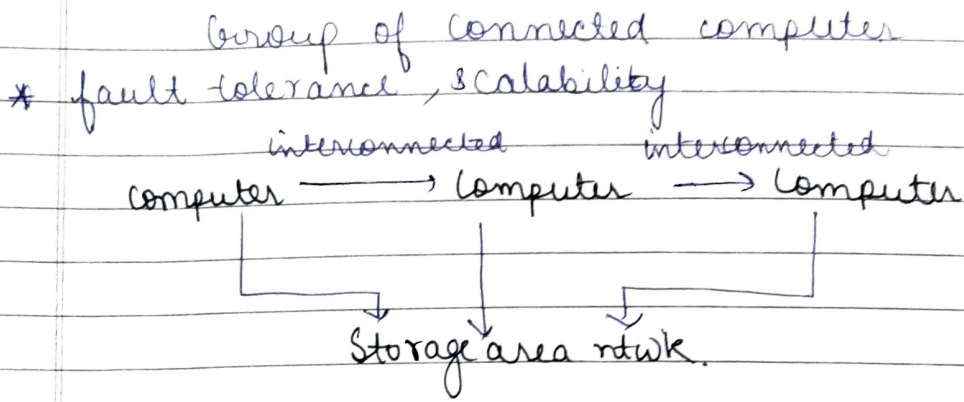 Group of connected computer
* fault tolerance, scalability
interconnected interconnected
computer → Computer → Computer
Storage area ntwk.